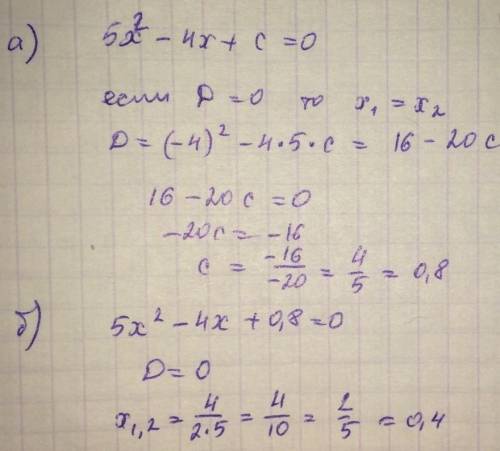 а) 5x² − 4x + c = 0
если D = 0 то x₁ = x₂
D = (−4)² − 4·5·c = 16 − 20c
16 − 20c = 0
−20c = −16
c = −16/−20 = 4/5 = 0,8
б) 5x² − 4x + 0,8 = 0
D = 0
x₁,₂ = 4/2·5 = 4/10 = 2/5 = 0,4